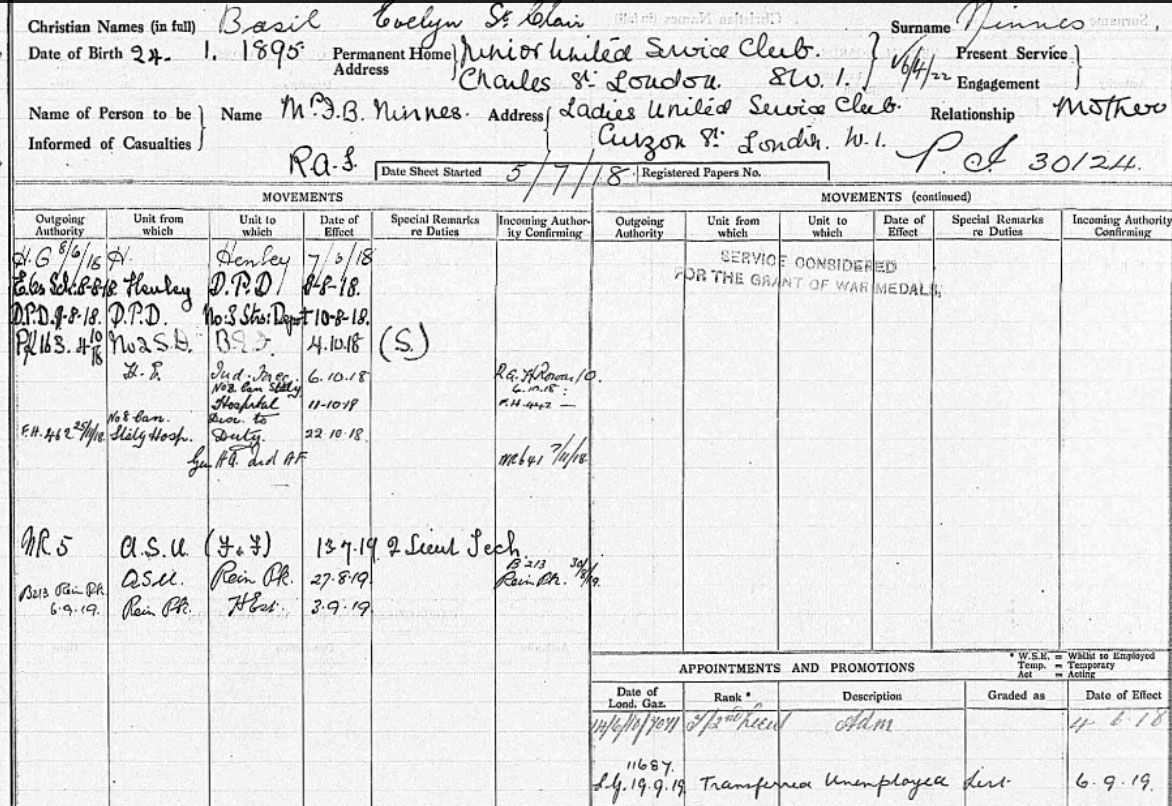 Christian Names (in full) Basil Evelyn St Clair Surname Ninnes
Date of Birth 24. 1. 1895 Permanent Home Address Junior United Service Club. Present Service
Charles St London. SW. 1. 1/6/4/22 Engagement
Name of Person to be Informed of Casualties Name Mrs F.B. Ninnes. Address Ladies United Service Club. Relationship Mother
Curzon St. London. W.1.
R.A.F. Date Sheet Started 5/7/18 Registered Papers No. P.I 30124.
MOVEMENTS
Outgoing Authority Unit from which Unit to which Date of Effect Special Remarks re Duties Incoming Authority Confirming
H.G 8/6/18 H. Henley 7/6/18
8-8-18 Henley D.P.D 8-8-18.
D.P.D. 9-8-18. D.P.D. No: 3 Depot 10-8-18.
163. 4/10/18 No 2 S.D. B.E.F. 4.10.18 (S.)
H.E. Ind. Forc. 6.10.18
6.10.18:
No 8 Can. Stat'y Hospital 11-10-18 F.H.442 —
F.H.462 25/11/18 No 8 Can. Stat'y Hosp. Disc. to Duty. 22.10.18
Gen HQ. Ind AF 7/11/18
NR 5 A.S.U. (F.&F) 13 7.19 2 Lieut Tech
A.S.U. Rein Pk. 27-8-19. B213 Rein Pk. 30/8/19.
B213 Rein Pk. 6.9.19. Rein Pk. H Est. 3.9.19.
MOVEMENTS (continued)
Outgoing Authority Unit from which Unit to which Date of Effect Special Remarks re Duties Incoming Authority Confirming
SERVICE CONSIDERED
FOR THE GRANT OF WAR MEDALS.
APPOINTMENTS AND PROMOTIONS
* W.S.E. = Whilst so Employed
Temp. = Temporary
Act = Acting
Date of Lond. Gaz. Rank * Description Graded as Date of Effect
T/2nd Lieut Adm 4 6 18
11687.
L.G. 19.9.19 Transferred Unemployed List 6.9.19.